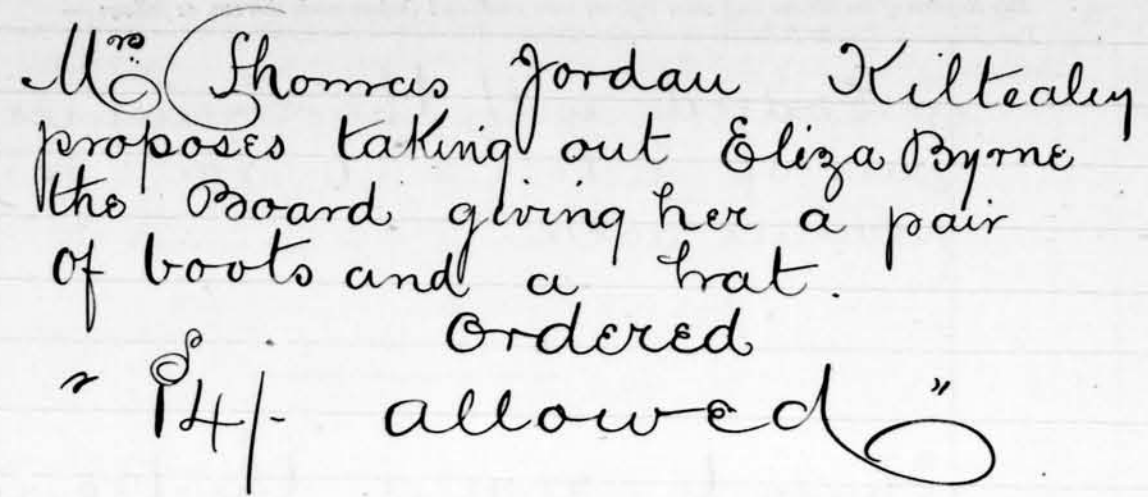 Mrs Thomas Jordan Kiltealey
proposes taking out Eliza Byrne
the Board giving her a pair
of boots and a hat.
Ordered
" 14/- allowed "